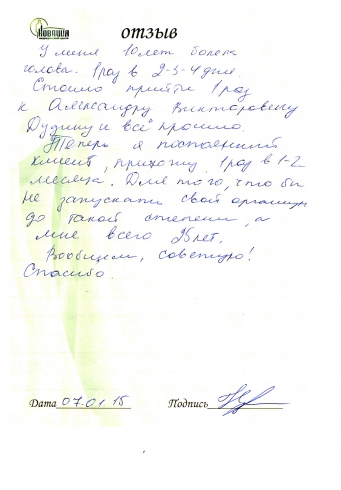 Новация
ОТЗЫВ
У меня 10 лет болела
голова. 1 раз в 2-3-4 дня.
Стоило прийти 1 раз
к Александру Викторовичу
Дудину и всё прошло.
Теперь я постоянный
клиент, прихожу 1 раз в 1-2
месяца. Для того, что бы
не запускать свой организм
до такой степени, а
мне всего 25 лет.
Вообщем, советую!
Спасибо.
Дата 07.01.15 Подпись